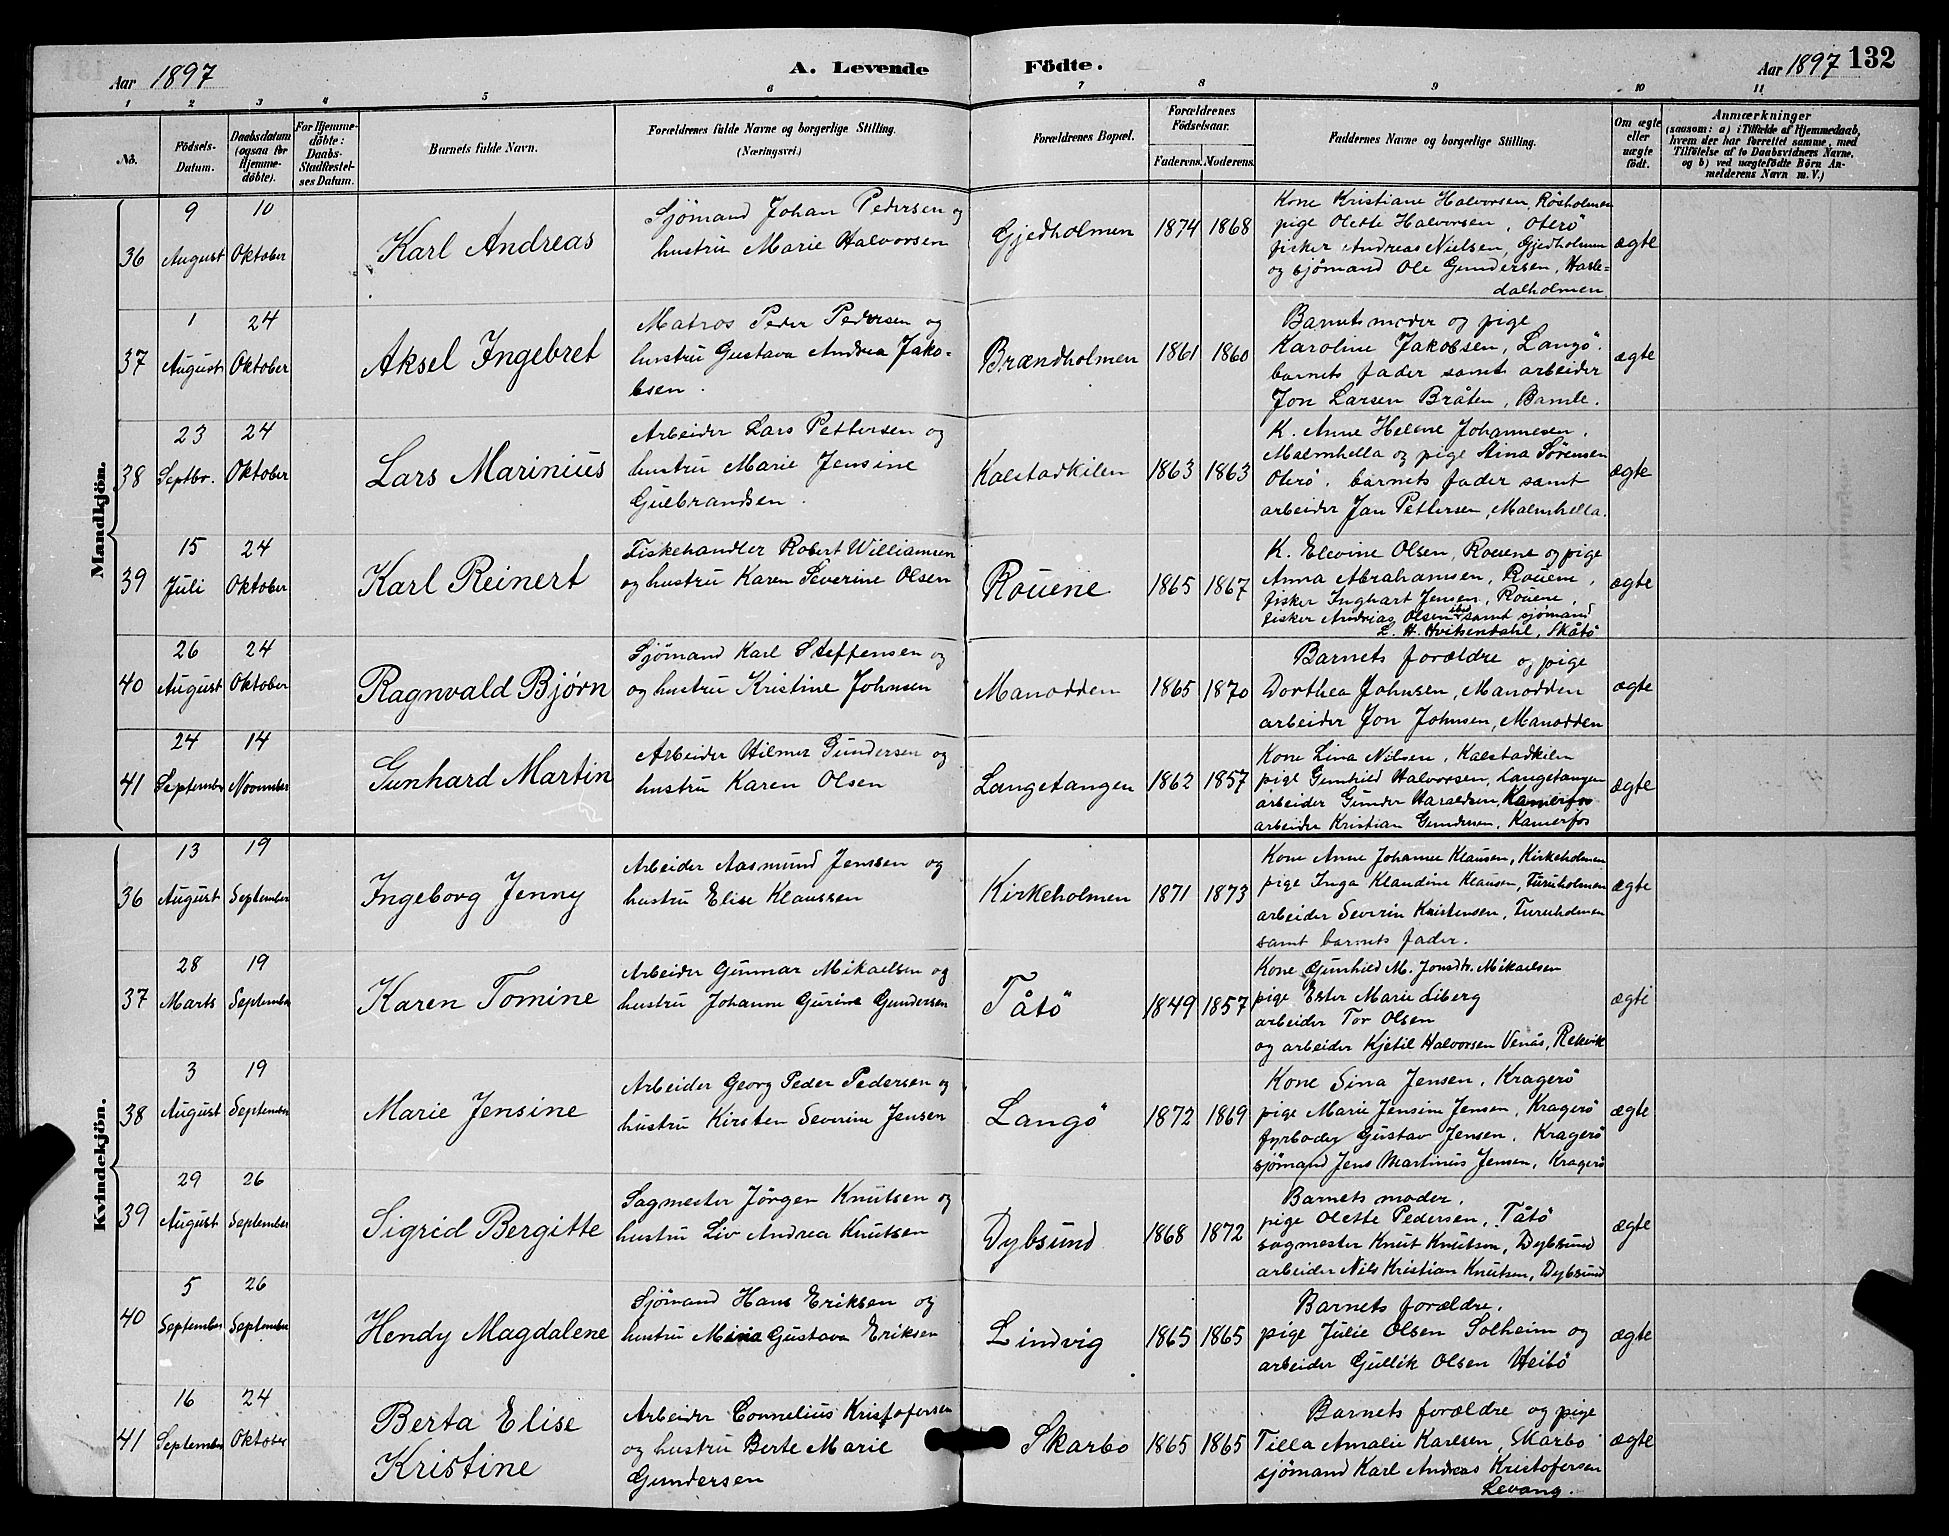 131
Aar 1897
A. Levende Födte.
Aar 1897 132
1 2 3 4 5 6 7 8 9 10 11
No.
Fødsels-Datum.
Daabsdatum (ogsaa for Hjemmedöbte).
For Hjemmedöbte: Daabs-Stadfæstelses Datum.
Barnets fulde Navn.
Forældrenes fulde Navne og borgerlige Stilling.
(Næringsvei.)
Forældrenes Bopæl.
Forældrenes Födselsaar.
Faderens. Moderens.
Faddernes Navne og borgerlige Stilling.
Om ægte eller uægte födt.
Anmærkninger
(saasom: a) i Tilfælde af Hjemmedaab,
hvem der har forrettet samme, med
Tilföielse af to Daabsvidners Navne,
og b) ved uægtefödte Börn Anmelderens Navn m. V.)
Mandkjön.
36 9 August 10 Oktober
Karl Andreas
Sjömand Johan Pedersen og
hustru Marie Halvorsen
Gjedholmen 1874 1868
Kone Kristiane Halvorsen Rösholmen
pige Olette Halvorsen, Oterö
fisker Andreas Nielsen, Gjedholmen
og sjömand Ole Gundersen, Hasle-
dalholmen.
ægte
37 1 August 24 Oktober
Aksel Ingebret
Matros Peder Pedersen og
hustru Gustava Andrea Jako-
bsen.
Brændholmen 1861 1860
Barnets moder og pige
Karoline Jakobsen, Langö.
barnets fader samt arbeider
Jon Larsen Bråten, Bamle.
ægte
38 23 Septbr. 24 Oktober
Lars Marinius
Arbeider Lars Pettersen og
hustru Marie Jensine
Gulbrandsen.
Kalstadkilen 1863 1863
K. Anne Helene Johannesen,
Malmhella og pige Stina Sørensen
Oterö, barnets fader samt
arbeider Jan Pettersen, Malmhella.
ægte
39 15 Juli 24 Oktober
Karl Reinert
Fiskehandler Robert Williamsen
og hustru Karen Severine Olsen
Rouene 1865 1867
K. Elevine Olsen, Rouene og pige
Anna Abrahamsen, Rouene,
fisker Inghart Jensen, Rouene,
fisker Andreas Olsen ibd samt sjömand
L. H. Hvitsendahl, Skåtö
ægte
40 26 August 24 Oktober
Ragnvald Bjørn
Sjömand Karl Steffensen og
og hustru Kristine Johnsen
Manodden 1865 1870
Barnets forældre og pige
Dorthea Johnsen, Manodden
arbeider Jon Johnsen, Manodden
ægte
41 24 September 14 November
Gunhard Martin
Arbeider Hilmer Gundersen og
hustru Karen Olsen
Langetangen 1862 1857
Kone Lina Nilsen, Kalstadkilen
pige Gunhild Halvorsen, Langetangen
arbeider Gunder Haraldsen, Kamerfos
arbeider Kristian Gundersen, Kamerfos
ægte
Kvindekjön.
36 13 August 19 September
Ingeborg Jenny
Arbeider Aasmund Jensen og
hustru Elise Klaussen
Kirkeholmen 1871 1873
Kone Anne Johanne Klausen, Kirkeholmen
pige Inga Klaudine Klausen, Furuholmen
arbeider Severin Kristensen, Furuholmen
samt barnets fader.
ægte
37 28 Marts 19 September
Karen Tomine
Arbeider Gunnar Mikaelsen og
hustru Johanne Gurine Gundersen
Tåtö 1849 1857
Kone Gunhild M. Jonsdr. Mikaelsen
pige Ester Marie Siberg
arbeider Tor Olsen
og arbeider Kjetil Halvorsen Venås, Rekevik
ægte
38 3 August 19 September
Marie Jensine
Arbeider Georg Peder Pedersen og
hustru Kirsten Severine Jensen
Langö 1872 1869
Kone Sina Jensen, Kragerö
pige Marie Jensine Jensen, Kragerö
fyrböder Gustav Jensen, Kragerö
sjömand Jens Martinus Jensen, Kragerö
ægte
39 29 August 26 September
Sigrid Bergitte
Sagmester Jörgen Knutsen og
hustru Liv Andrea Knutsen
Dybsund 1868 1872
Barnets moder,
pige Olette Pedersen, Tåtö
sagmester Knut Knutsen, Dybsund
arbeider Nils Kristian Knutsen, Dybsund
ægte
40 5 September 26 September
Hendy Magdalene
Sjömand Hans Eriksen og
hustru Mina Gustava Eriksen
Lindvig 1865 1865
Barnets forældre,
pige Julie Olsen Solheim og
arbeider Gullik Olsen Heibö
ægte
41 16 September 24 Oktober
Berta Elise
Kristine
Arbeider Cornelius Kristofersen
og hustru Berte Marie
Gundersen
Skarbo 1865 1865
Barnets forældre og pige
Tilla Amalie Karlsen, Skarbo
sjömand Karl Andreas Kristofersen
Levang.
ægte